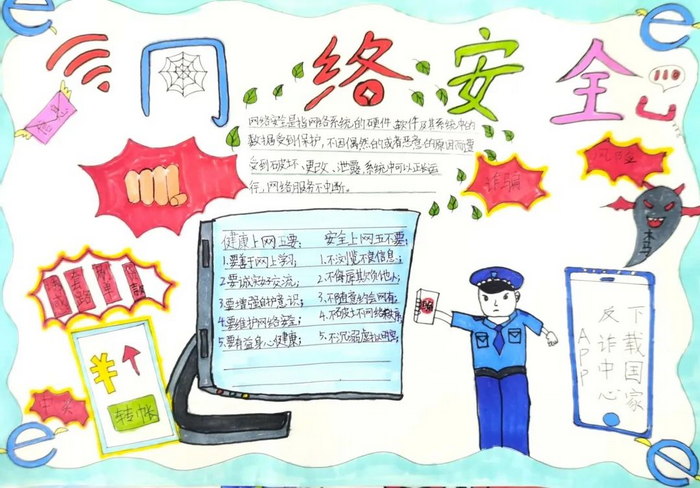 网络安全
网络安全是指网络系统的硬件、软件及其系统中的
数据受到保护,不因偶然的或者恶意的原因而遭
受到破坏、更改、泄露,系统中可以正长运
行,网络服务不中断。
诈骗
风险
健康上网五要:
1.要善于网上学习;
2.要诚实友好交流;
3.要增强自护意识;
4.要维护网络安全;
5.要有益身心健康;
安全上网五不要:
1.不浏览不良信息;
2.不侮辱欺负他人;
3.不随意约会网友;
4.不破坏网络秩序;
5.不沉溺虚拟时空;
中奖
转帐
下载国家
反诈中心
APP